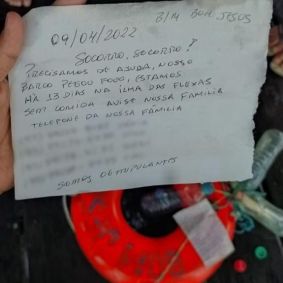 B/M BOM JESUS
09/04/2022
SOCORRO, SOCORRO!
PRECISAMOS DE AJUDA, NOSSO
BARCO PEGOU FOGO, ESTAMOS
HÁ 13 DIAS NA ILHA DAS FLEXAS
SEM COMIDA AVISE NOSSA FAMILIA
TELEFONE DA NOSSA FAMILIA
SOMOS 06 TRIPULANTES